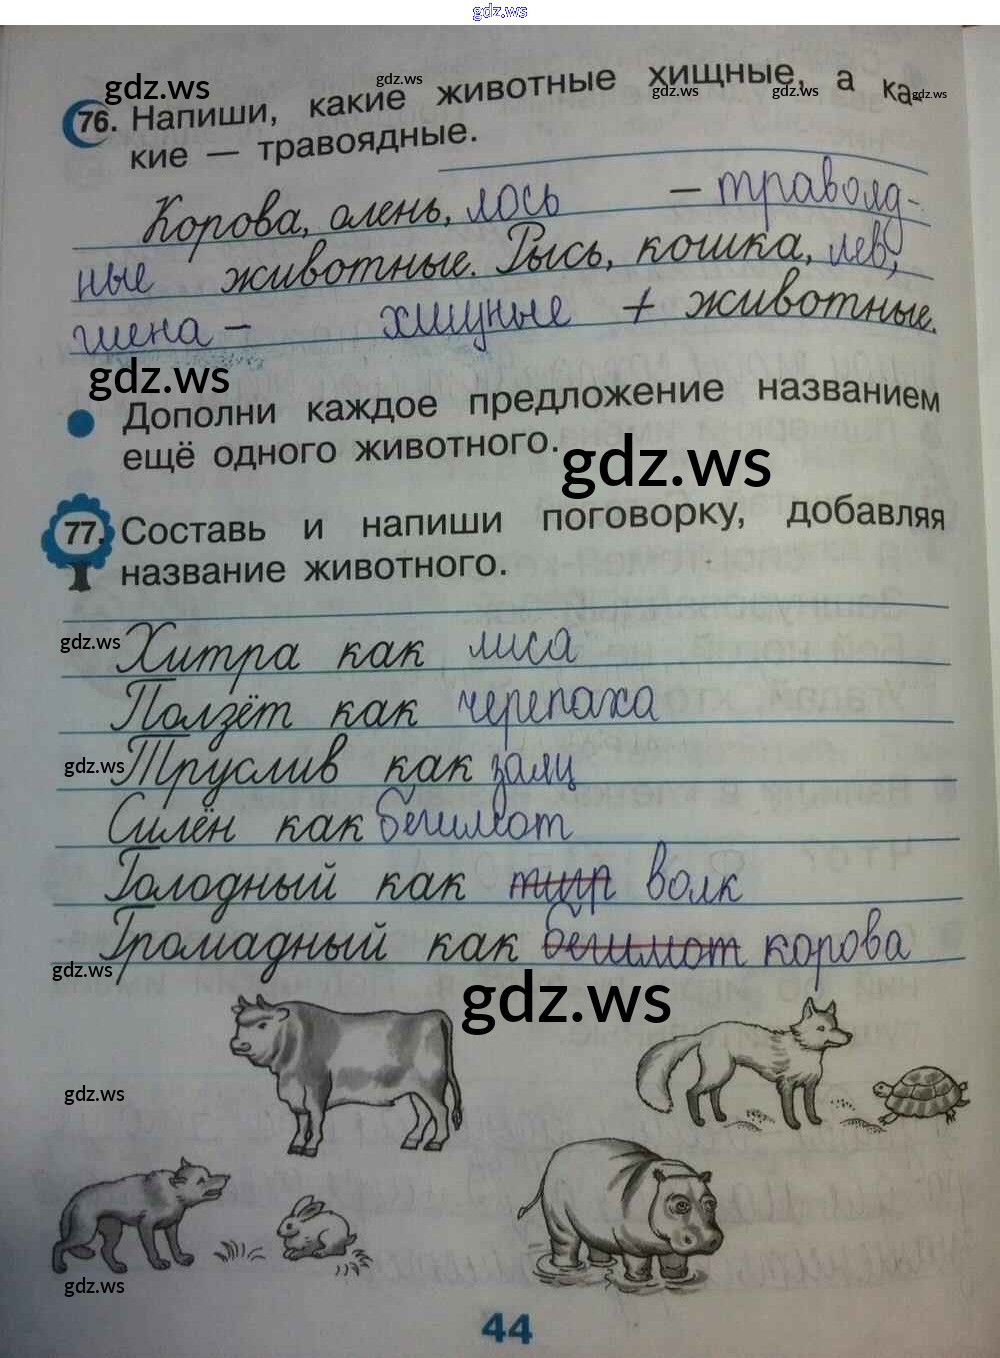 gdz.ws
gdz.ws gdz.ws
76. Напиши, какие животные хищные, а ка-
gdz.ws gdz.ws gdz.ws
кие — травоядные.
Корова, олень, лось — травояд-
ные животные. Рысь, кошка, лев,
гиена — хищные + животные.
gdz.ws
Дополни каждое предложение названием
ещё одного животного.
gdz.ws
77. Составь и напиши поговорку, добавляя
название животного.
gdz.ws
Хитра как лиса
Ползёт как черепаха
gdz.ws
Труслив как заяц
Силён как бегимот
Голодный как тигр волк
Громадный как бегимот корова
gdz.ws
gdz.ws
gdz.ws
gdz.ws
44